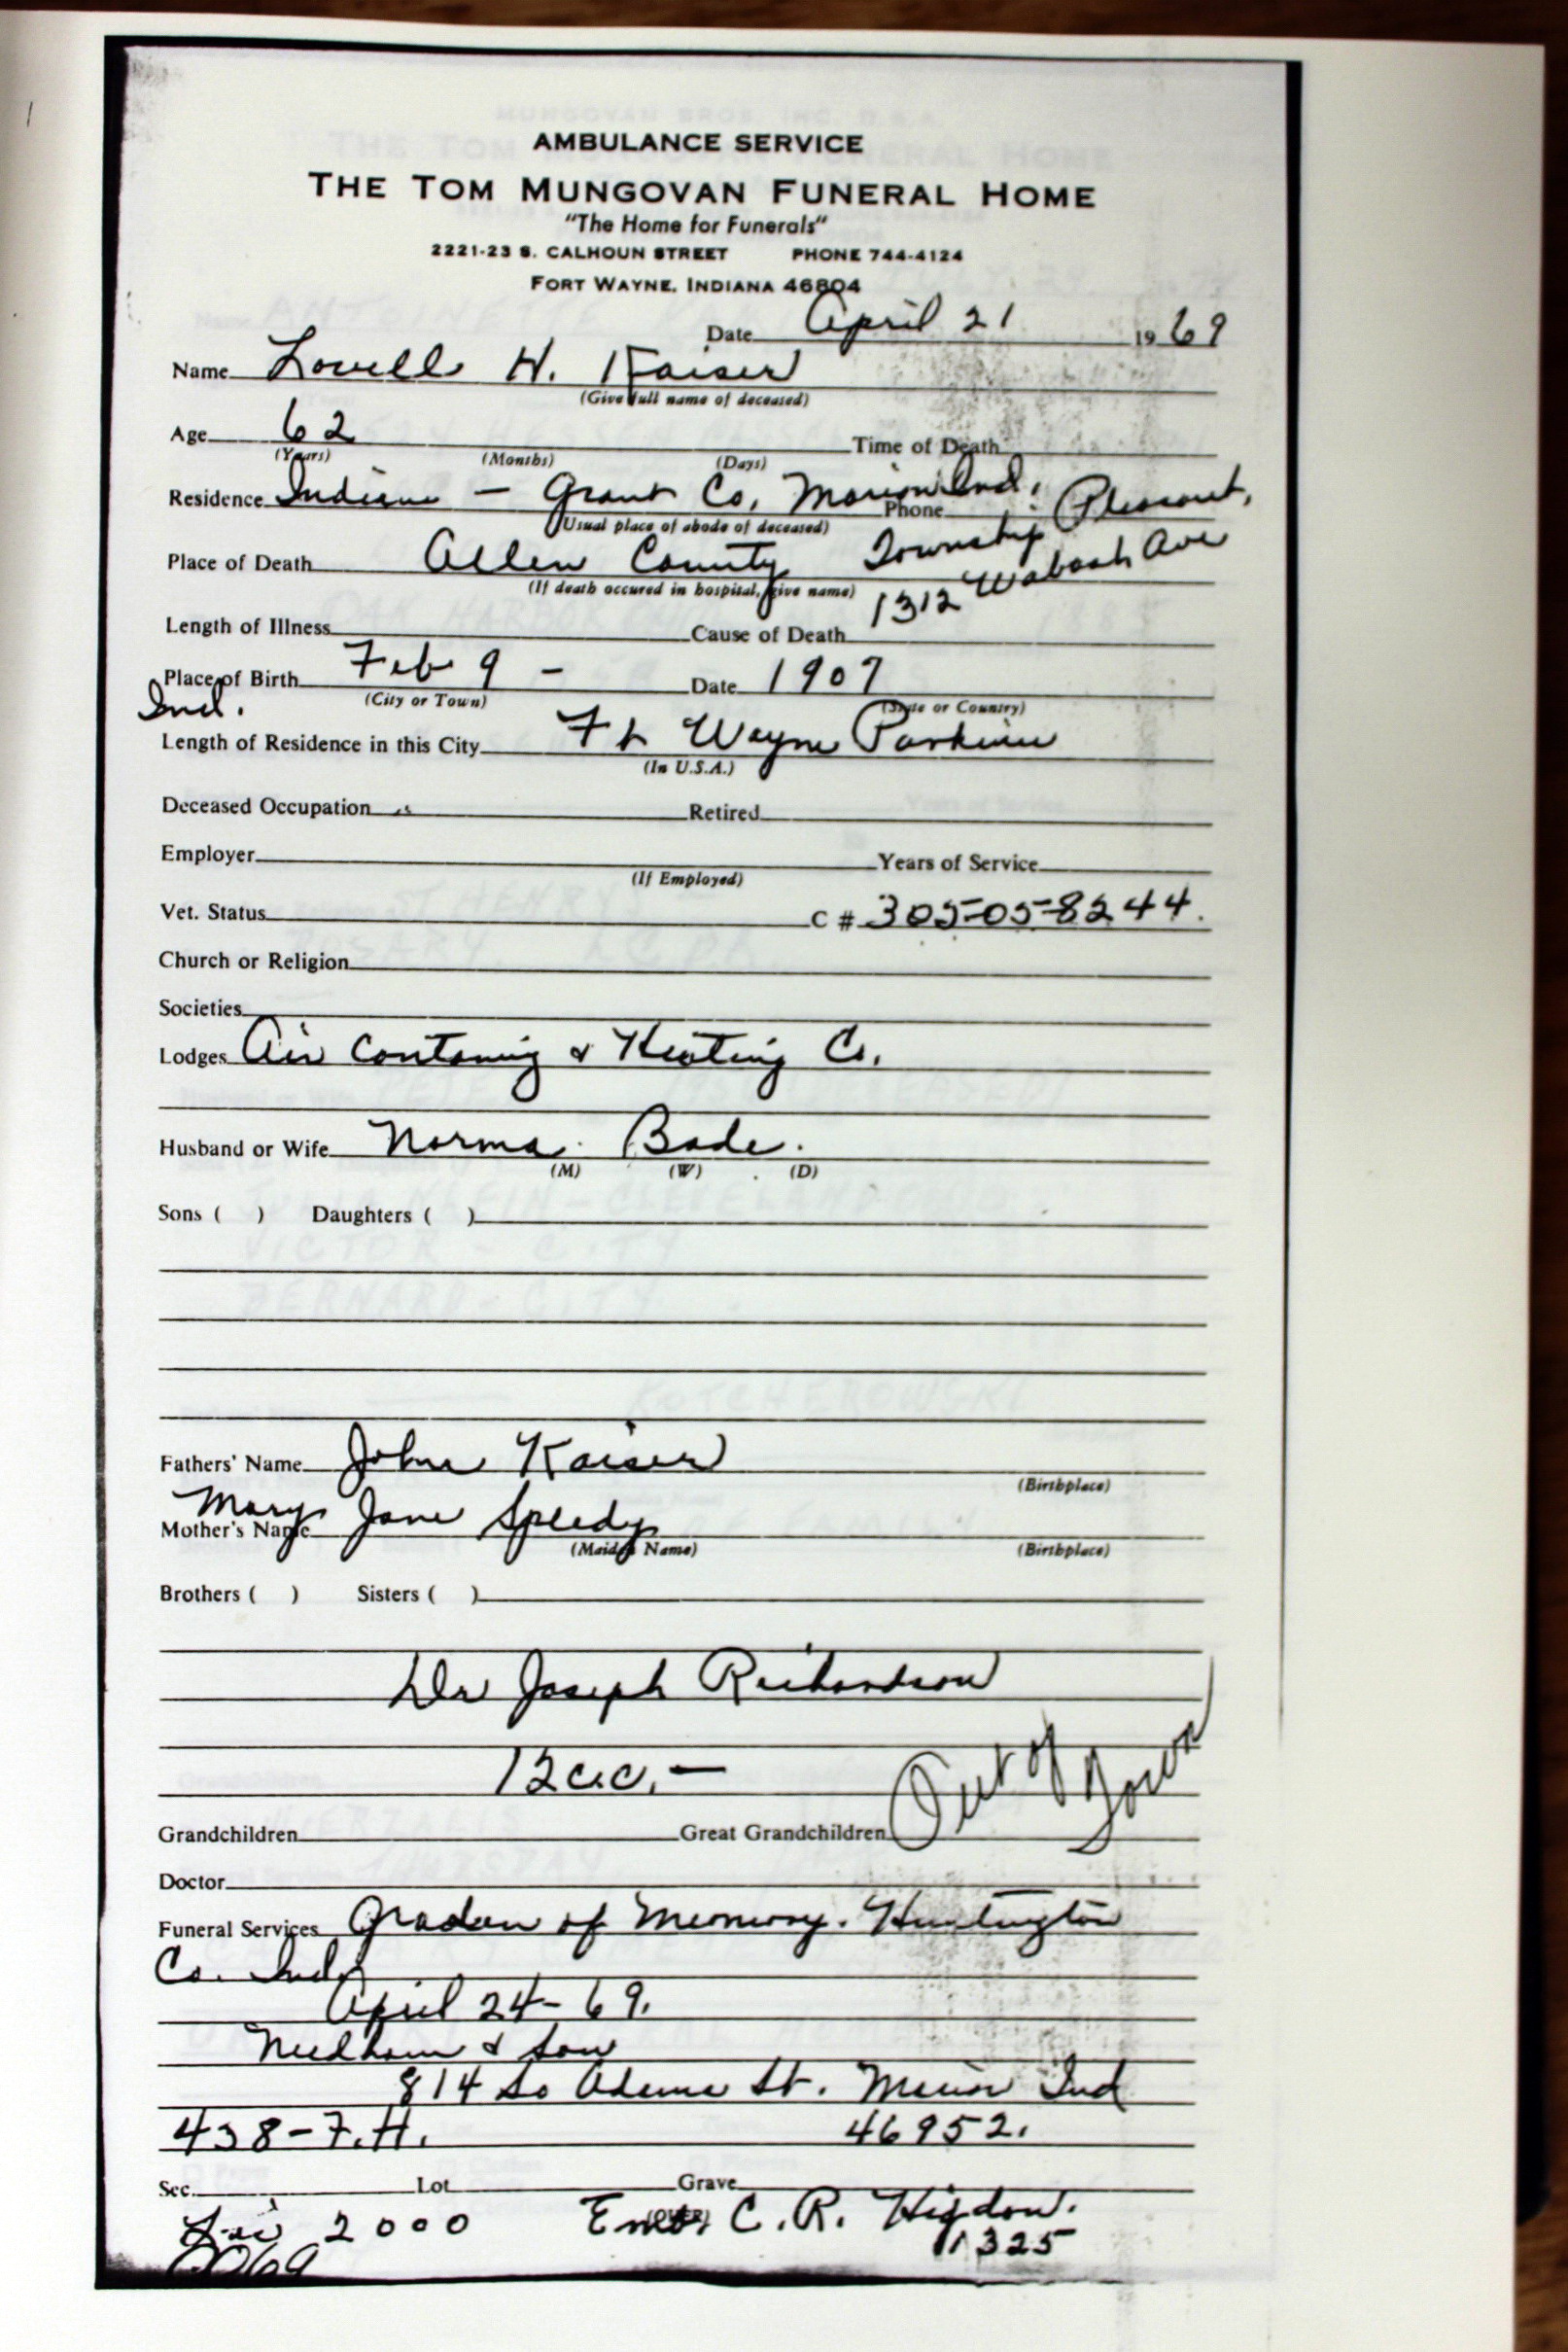 AMBULANCE SERVICE
THE TOM MUNGOVAN FUNERAL HOME
"The Home for Funerals"
2221-23 S. CALHOUN STREET PHONE 744-4124
FORT WAYNE, INDIANA 46804
Date April 21 1969
Name Lowell H. Kaiser
(Give full name of deceased)
Age 62 Time of Death
(Years) (Months) (Days)
Residence Indiana - Grant Co, Marion Ind. Phone Pleasant,
(Usual place of abode of deceased) Township
Place of Death Allen County 1312 Wabash Ave
(If death occured in hospital, give name)
Length of Illness Cause of Death
Place of Birth Feb 9 - Date 1907
Ind. (City or Town) (State or Country)
Length of Residence in this City Ft Wayne
(In U.S.A.)
Deceased Occupation Retired
Employer Years of Service
(If Employed)
Vet. Status C # 305-05-8244.
Church or Religion
Societies
Lodges Air & Heating Co.
Husband or Wife Norma Bade.
(M) (W) (D)
Sons ( ) Daughters ( )
Fathers' Name John Kaiser
(Birthplace)
Mother's Name Mary Jane Speedy
(Maiden Name) (Birthplace)
Brothers ( ) Sisters ( )
Dr Joseph Richardson
12 c.c. -
Out of Town
Grandchildren Great Grandchildren
Doctor
Funeral Services of Memory. Huntington
Co. Ind
April 24-69.
Needham & Son
814 So Adams St. Ind
438-F.H. 46952.
Sec. Lot Grave
(OVER)
Lic 2000 C. R. Higdon.
1325